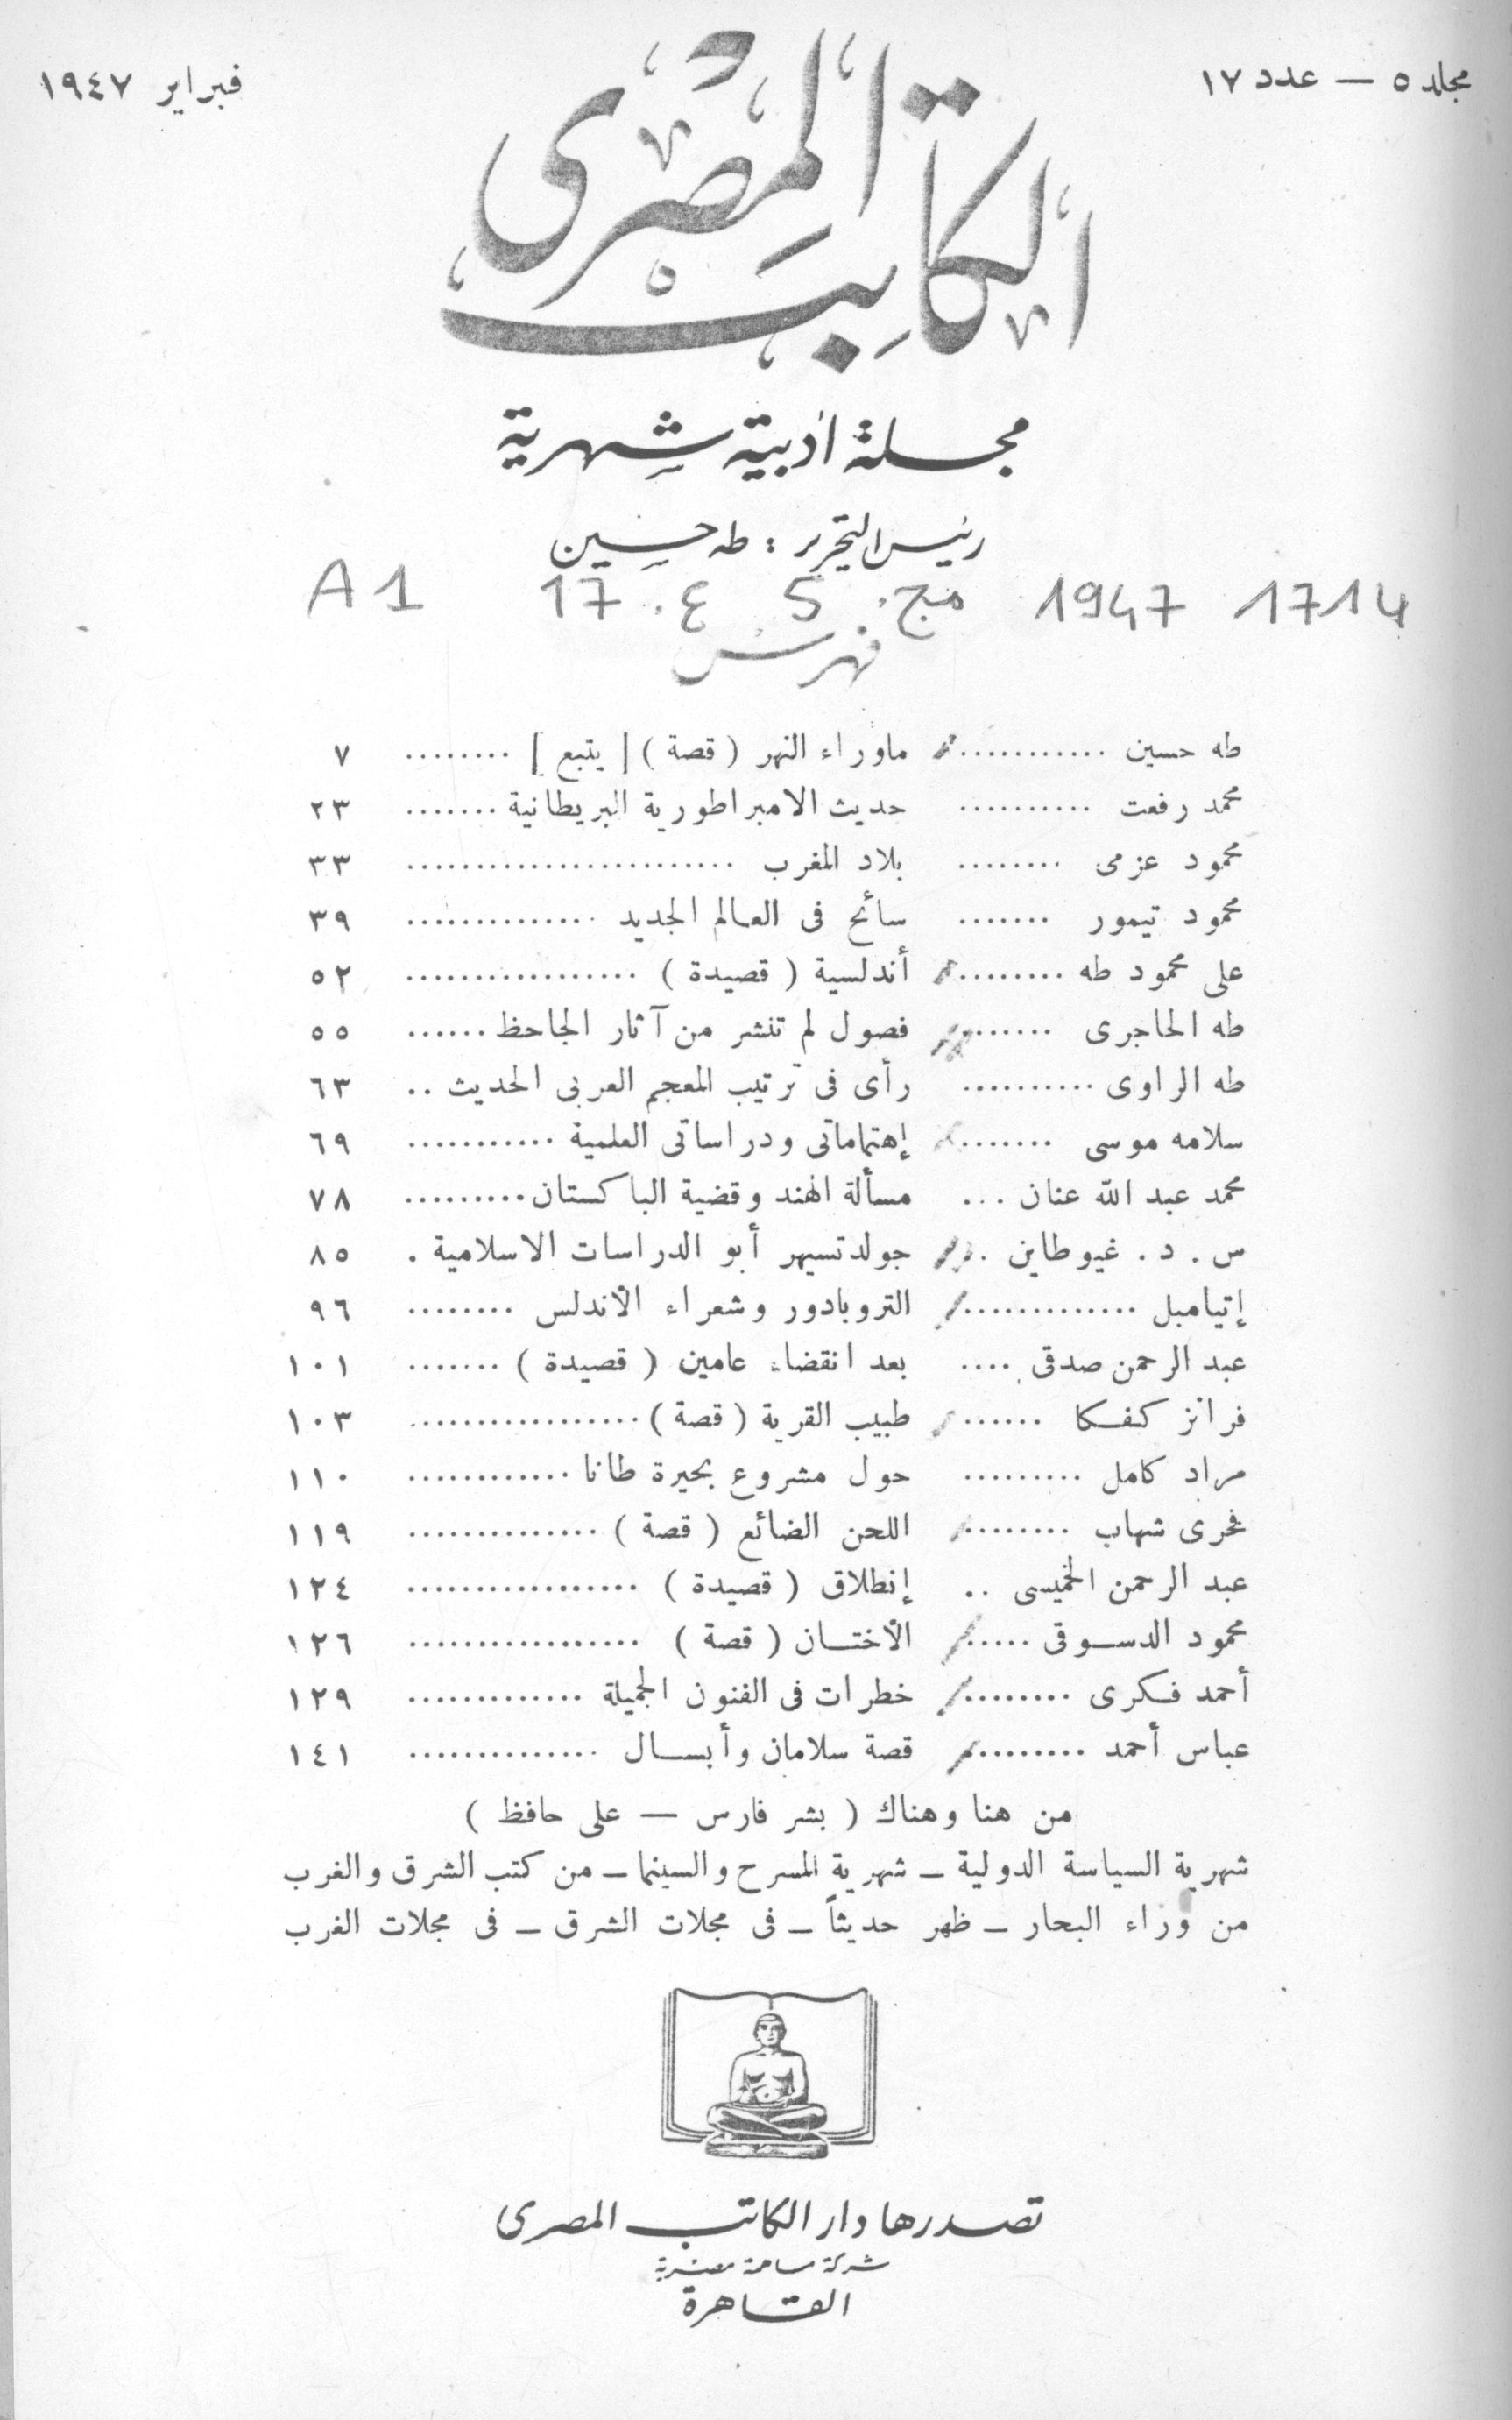 مجلد ٥ — عدد ١٧
فبراير ١٩٤٧
الكاتب المصرى
مجلة أدبية شهرية
رئيس التحرير : طه حسين
1714 1947 مج. 5 ع. 17 A1
فهرس
طه حسين ........... ماوراء النهر ( قصة ) [ يتبع ] ......... ٧
محمد رفعت .......... حديث الامبراطورية البريطانية ....... ٢٣
محمود عزمى ........ بلاد المغرب ........................ ٣٣
محمود تيمور ....... سائح فى العالم الجديد .............. ٣٩
على محمود طه ........ أندلسية ( قصيدة ) ................. ٥٢
طه الحاجرى ....... فصول لم تنشر من آثار الجاحظ ...... ٥٥
طه الراوى .......... رأى فى ترتيب المعجم العربى الحديث .. ٦٣
سلامه موسى ....... إهتماماتى ودراساتى العلمية ........... ٦٩
محمد عبد الله عنان ... مسألة الهند وقضية الباكستان ......... ٧٨
س . د . غيوطاين .. جولدتسيهر أبو الدراسات الاسلامية . ٨٥
إتيامبل ............. التروبادور وشعراء الأندلس ........ ٩٦
عبد الرحمن صدقى .... بعد انقضاء عامين ( قصيدة ) ....... ١٠١
فرانز كفكا ...... طبيب القرية ( قصة ) ................. ١٠٣
مراد كامل ......... حول مشروع بحيرة طانا ............ ١١٠
فخرى شهاب ........ اللحن الضائع ( قصة ) .............. ١١٩
عبد الرحمن الخميسى .. إنطلاق ( قصيدة ) ................. ١٢٤
محمود الدسوقى ..... الأختان ( قصة ) ................. ١٢٦
أحمد فكرى ........ خطرات فى الفنون الجميلة ............. ١٢٩
عباس أحمد ........ قصة سلامان وأبسال .............. ١٤١
من هنا وهناك ( بشر فارس — على حافظ )
شهرية السياسة الدولية – شهرية المسرح والسينما – من كتب الشرق والغرب
من وراء البحار – ظهر حديثاً – فى مجلات الشرق – فى مجلات الغرب
تصدرها دار الكاتب المصرى
شركة مساهمة مصرية
القاهرة